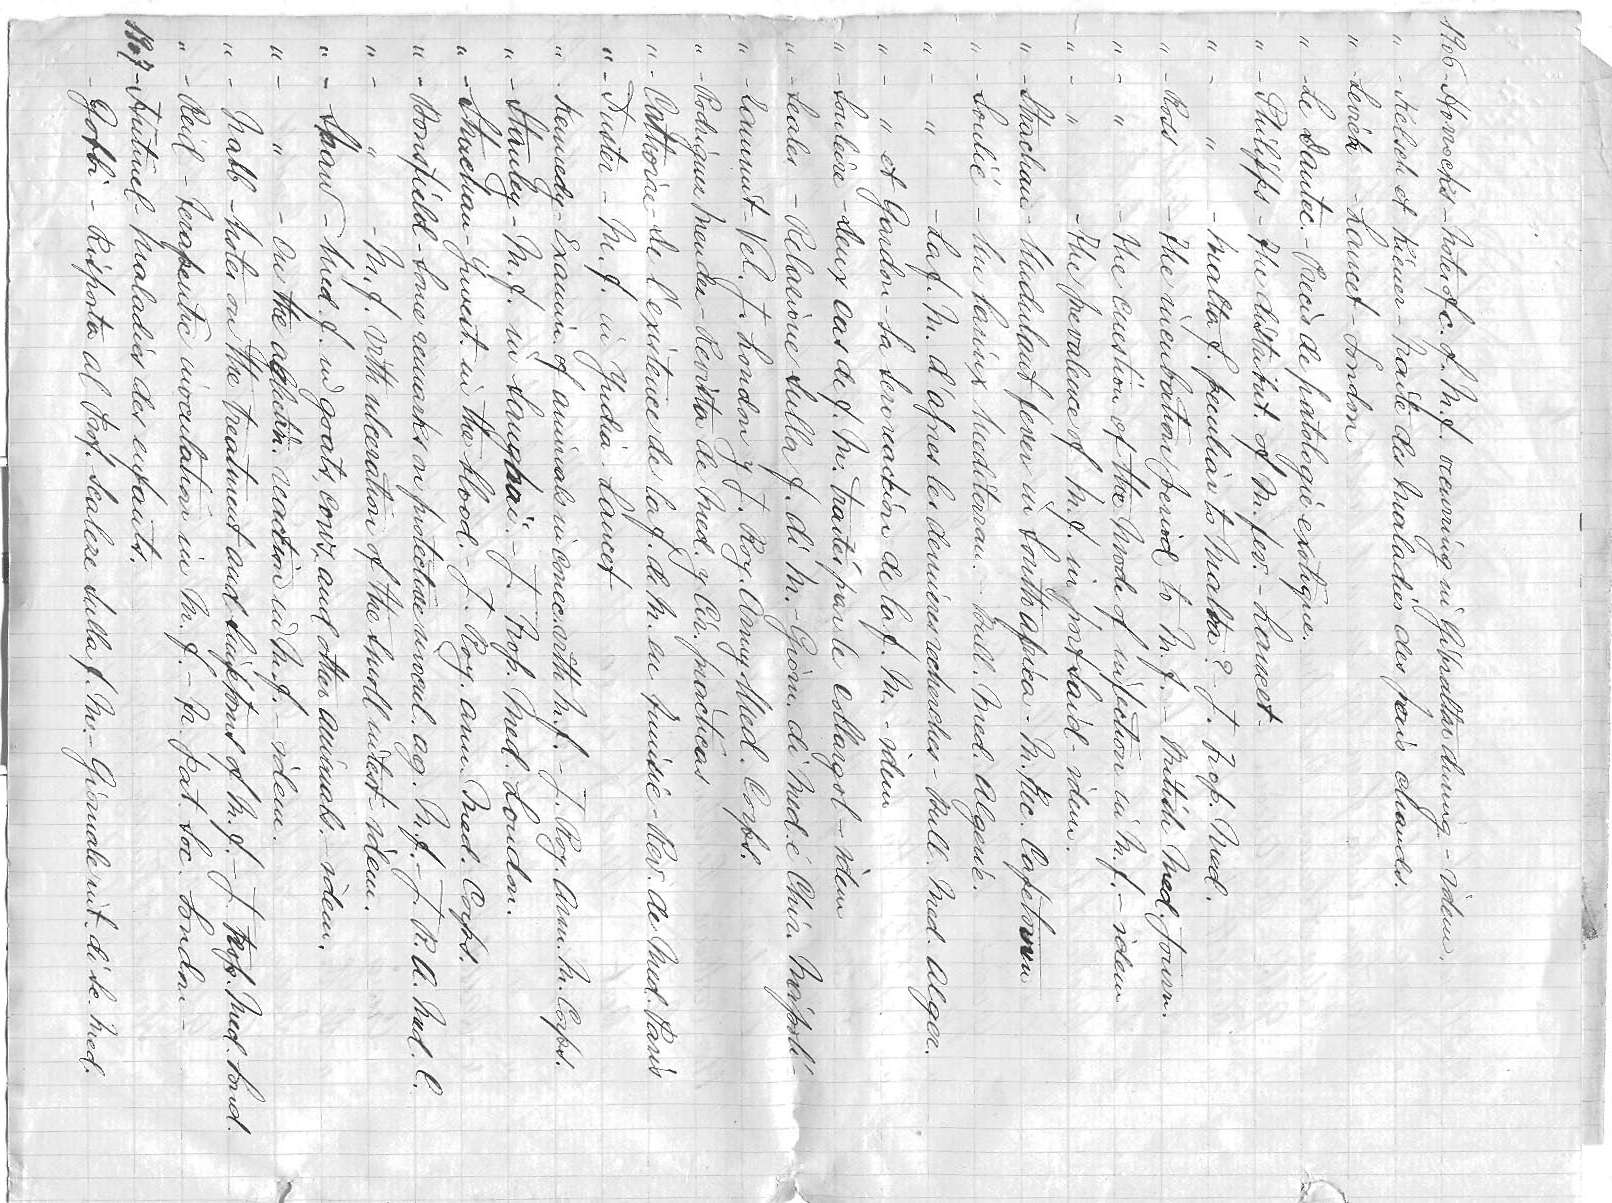 1906 - Horrocks - Note of c. of M. f. occurring in Gibraltar during - idem.
" - Kelsch et Kiener - Traité des maladies des pais chauds.
" - - Lancet - London
" - Le Dantec. - Précis de patologie exotique.
" - Philipps - The distribut. of M. fev. - Lancet -
" - " - Malta f. peculiar to Malta? - J. trop. Med.
" - Ross - The incubation period to M. f. - British Med. Journ.
" - " - The cuestion of the mode of infection in M. f. - idem
" - " - The prevalence of M. f. in port Said - idem.
" - Strachan - Undulant fever in South africa - M. Rec. Capetown
" - Soulié - - Bull. Med. Algerie.
" - " - La f. M. d'apres les dernieres recherches - Bull. Med. Alger.
" - " et Gardon - La seroreaction de la f. M. - idem
" - - deux cas de f. M. traités par le collargol - idem
" - Scalesi - Relazione sulla f. di M. - Giorn. di Med. é Chir. Napoli -
" - - Vel. J. London y J. Roy. Army Med. Corps.
" - Rodriguez Mendez - Revista de Med. y Cir. practicas
" - Cathoire - De l'existence de la f. de M. en Tunisie - Rev. de Med. Paris
" - - M. f. in India. Lancet
" - Kennedy - Examin. of animals in conec. with M. f. - J. Roy. Arm. M. Corps.
" - Stanley - M. f. in Sanghai - J. trop. Med. London.
" - Strachan - in the blood. - J. Roy. arm. Med. Corps.
" - Bonsfield - Some remarks on protective inocul. ag. M. f. - J. R. A. Med. C.
" - " - M. f. with ulceration of the small intest - idem.
" - Shaw - Med. f. in goats, cows, and other animals - idem.
" - " - On the aglutin. reaction in M. f. - idem.
" - Nabb - Notes on the treatment and simptoms of M. f. - J. trop. Med. Lond.
" - Reid - terapeutic inoculation in M. f. - Tr. Pat. Soc. London -
1907 - - Maladies des enfants.
- Gotti - Risposta al Prof. Scalese sulla f. M. - Giornale int. di Sc. Med.